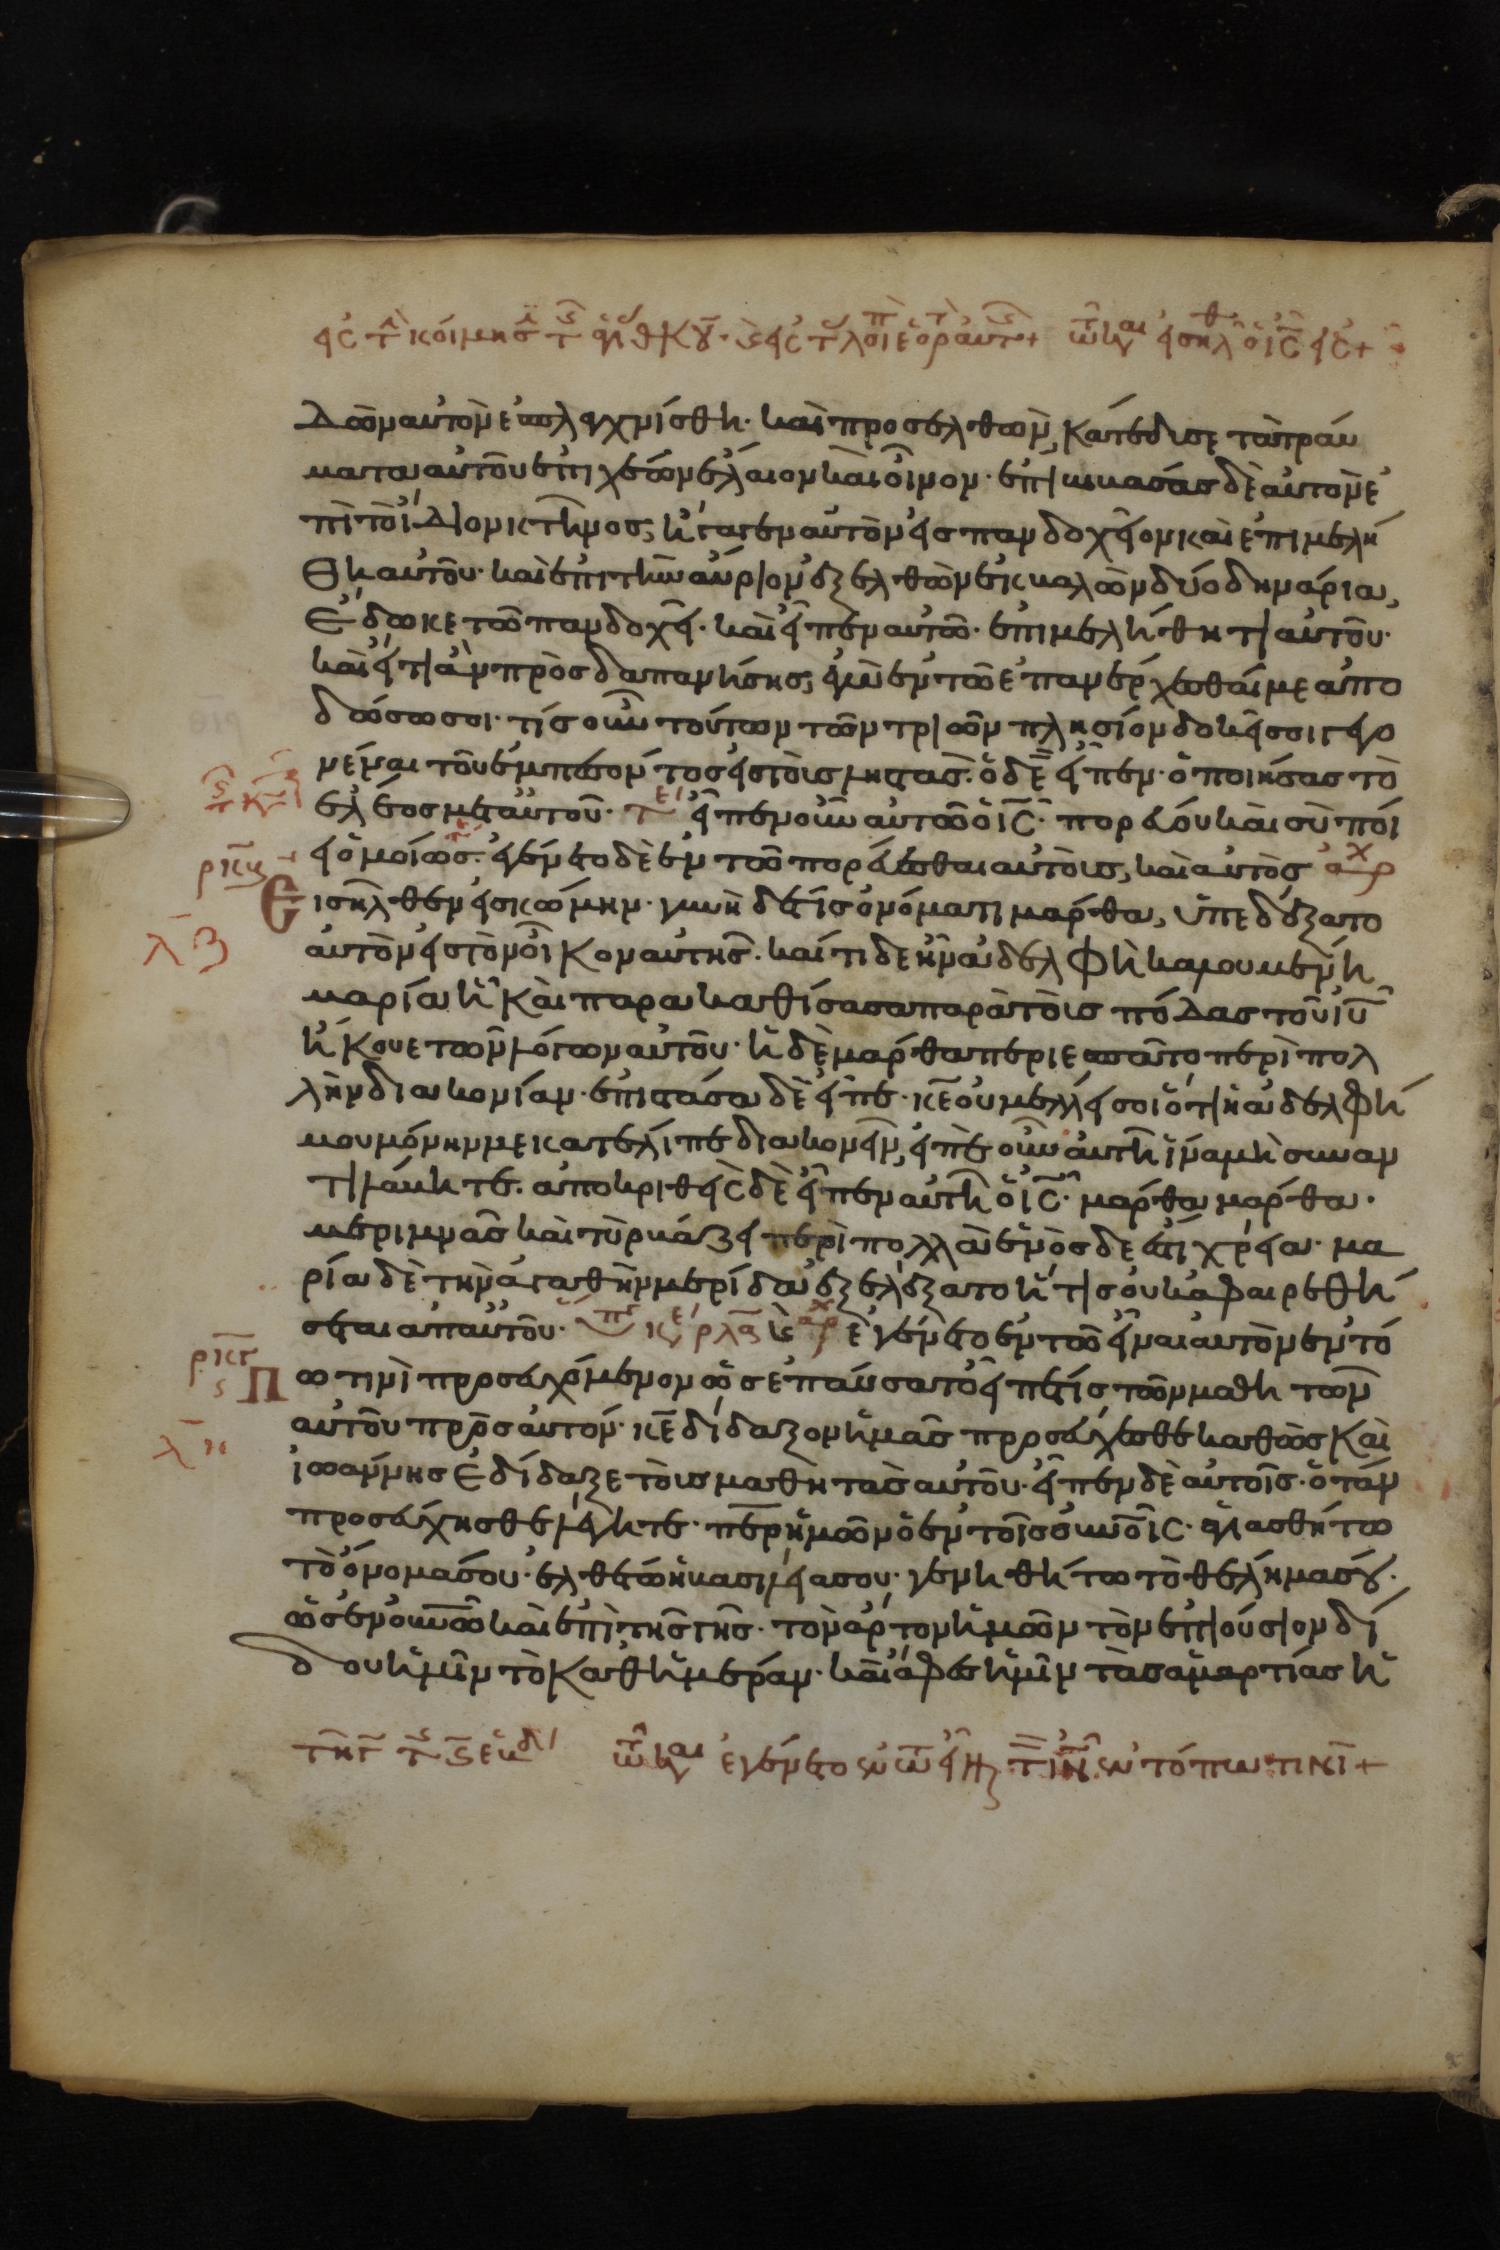 δὼν αὐτὸν ἐσπλαγχνίσθη· καὶ προσελθὼν, κατέδισε τὰ τραύ
ματα αὐτοῦ ἐπιχέων ἔλαιον καὶ οἶνον· ἐπιβιβάσας δὲ αὐτὸν ἐ
πὶ τὸ ἴδιον κτῆνος, ἤγαγεν αὐτὸν εἰς πανδοχεῖον καὶ ἐπιμελή
θη αὐτοῦ· καὶ ἐπι τὴν αὔριον ἐξελθὼν ἐκβαλὼν δύο δηνάρια,
ἔδωκε τῶ πανδοχεῖ· καὶ εἶπεν αὐτῶ· ἐπιμελήθητι αὐτοῦ·
καὶ εἴ τι ἂν προσδαπανήσης, ἐγὼ ἐν τῶ ἐπανέρχεσθαί με ἀπο
δώσω σοι· τίς οὖν τούτων τῶν τριῶν πλησίον δοκεῖ σοι γεγο
νέναι τοῦ ἐμπεσόντος εἰς τοὺς ληστάς. ὁ δὲ εἶπεν· ὁ ποιήσας τὸ
ἔλεος μετ αὐτοῦ· εἶπεν οὖν αὐτῶ ὁ ις· πορεύου καὶ σὺ ποί
ει ὁμοίως. ἐγένετο δὲ ἐν τῶ πορεύεσθαι αὐτοὺς, καὶ αὐτὸς
ρκβ
εἰσῆλθεν εἰς κώμην· γυνὴ δέ τις ὀνόματι μάρθα, ὑπεδέξατο
λζ
αὐτὸν εἰς τὸν οἶκον αὐτῆς. καί τι δε ἦν ἀδελφὴ καλουμένη
μαρία ἣ καὶ παρακαθίσασα παρὰ τοὺς πόδας τοῦ ιυ
ἤκουε τῶν λόγων αὐτοῦ· ἡ δὲ μάρθα περιεσπᾶτο περὶ πολ
λὴν διακονίαν· ἐπιστάσα δὲ εἶπε· κε οὐ μέλλει σοι ὅτι ἡ ἀδελφή
μου μόνην με κατέλιπε διακονεῖν, εἰπὲ οὖν αὐτῆ ἵνα μὴ συναν
τιλάβητε. ἀποκριθεὶς δὲ εἶπεν αὐτῆ ὁ ις· μάρθα μάρθα·
μεριμνᾶς καὶ τυρβάζει περὶ πολλὰ ἑνὸς δέ ἐστι χρεία· μα
ρία δὲ τὴν ἀγαθὴν μερίδα ἐξελέξατο ἥτις οὐκ ἀφαιρεθή
σεται ἀπ αὐτοῦ· ἐγένετο ἐν τῶ εἶναι αὐτὸν ἐν τό
ρκγ
πω τινὶ προσευχόμενον ὡς ἐπαύσατο εἶπέ τις τῶν μαθητῶν
λη
αὐτοῦ πρὸς αὐτόν· κε δίδαξον ἡμᾶς προσεύχεσθε καθὼς καὶ
ἰωάννης ἐδίδαξε τοὺς μαθητὰς αὐτοῦ· εἶπεν δὲ αὐτοῖς· ὅταν
προσεύχησθε λέγητε· περ ἡμῶν ὁ ἐν τοῖς οὐνοῖς· ἁγιασθήτω
τὸ ὄνομά σου· ἐλθέτω ἡ βασιλεία σου· γενηθήτω τὸ θέλημά σου·
ὡς ἐν οὐνῶ καὶ ἐπὶ τῆς γῆς· τὸν ἄρτον ἡμῶν τὸν ἐπιούσιον δί
δου ἡμῖν τὸ καθ ἡμέραν· καὶ ἄφες ἡμῖν τὰς ἁμαρτίας ἡ